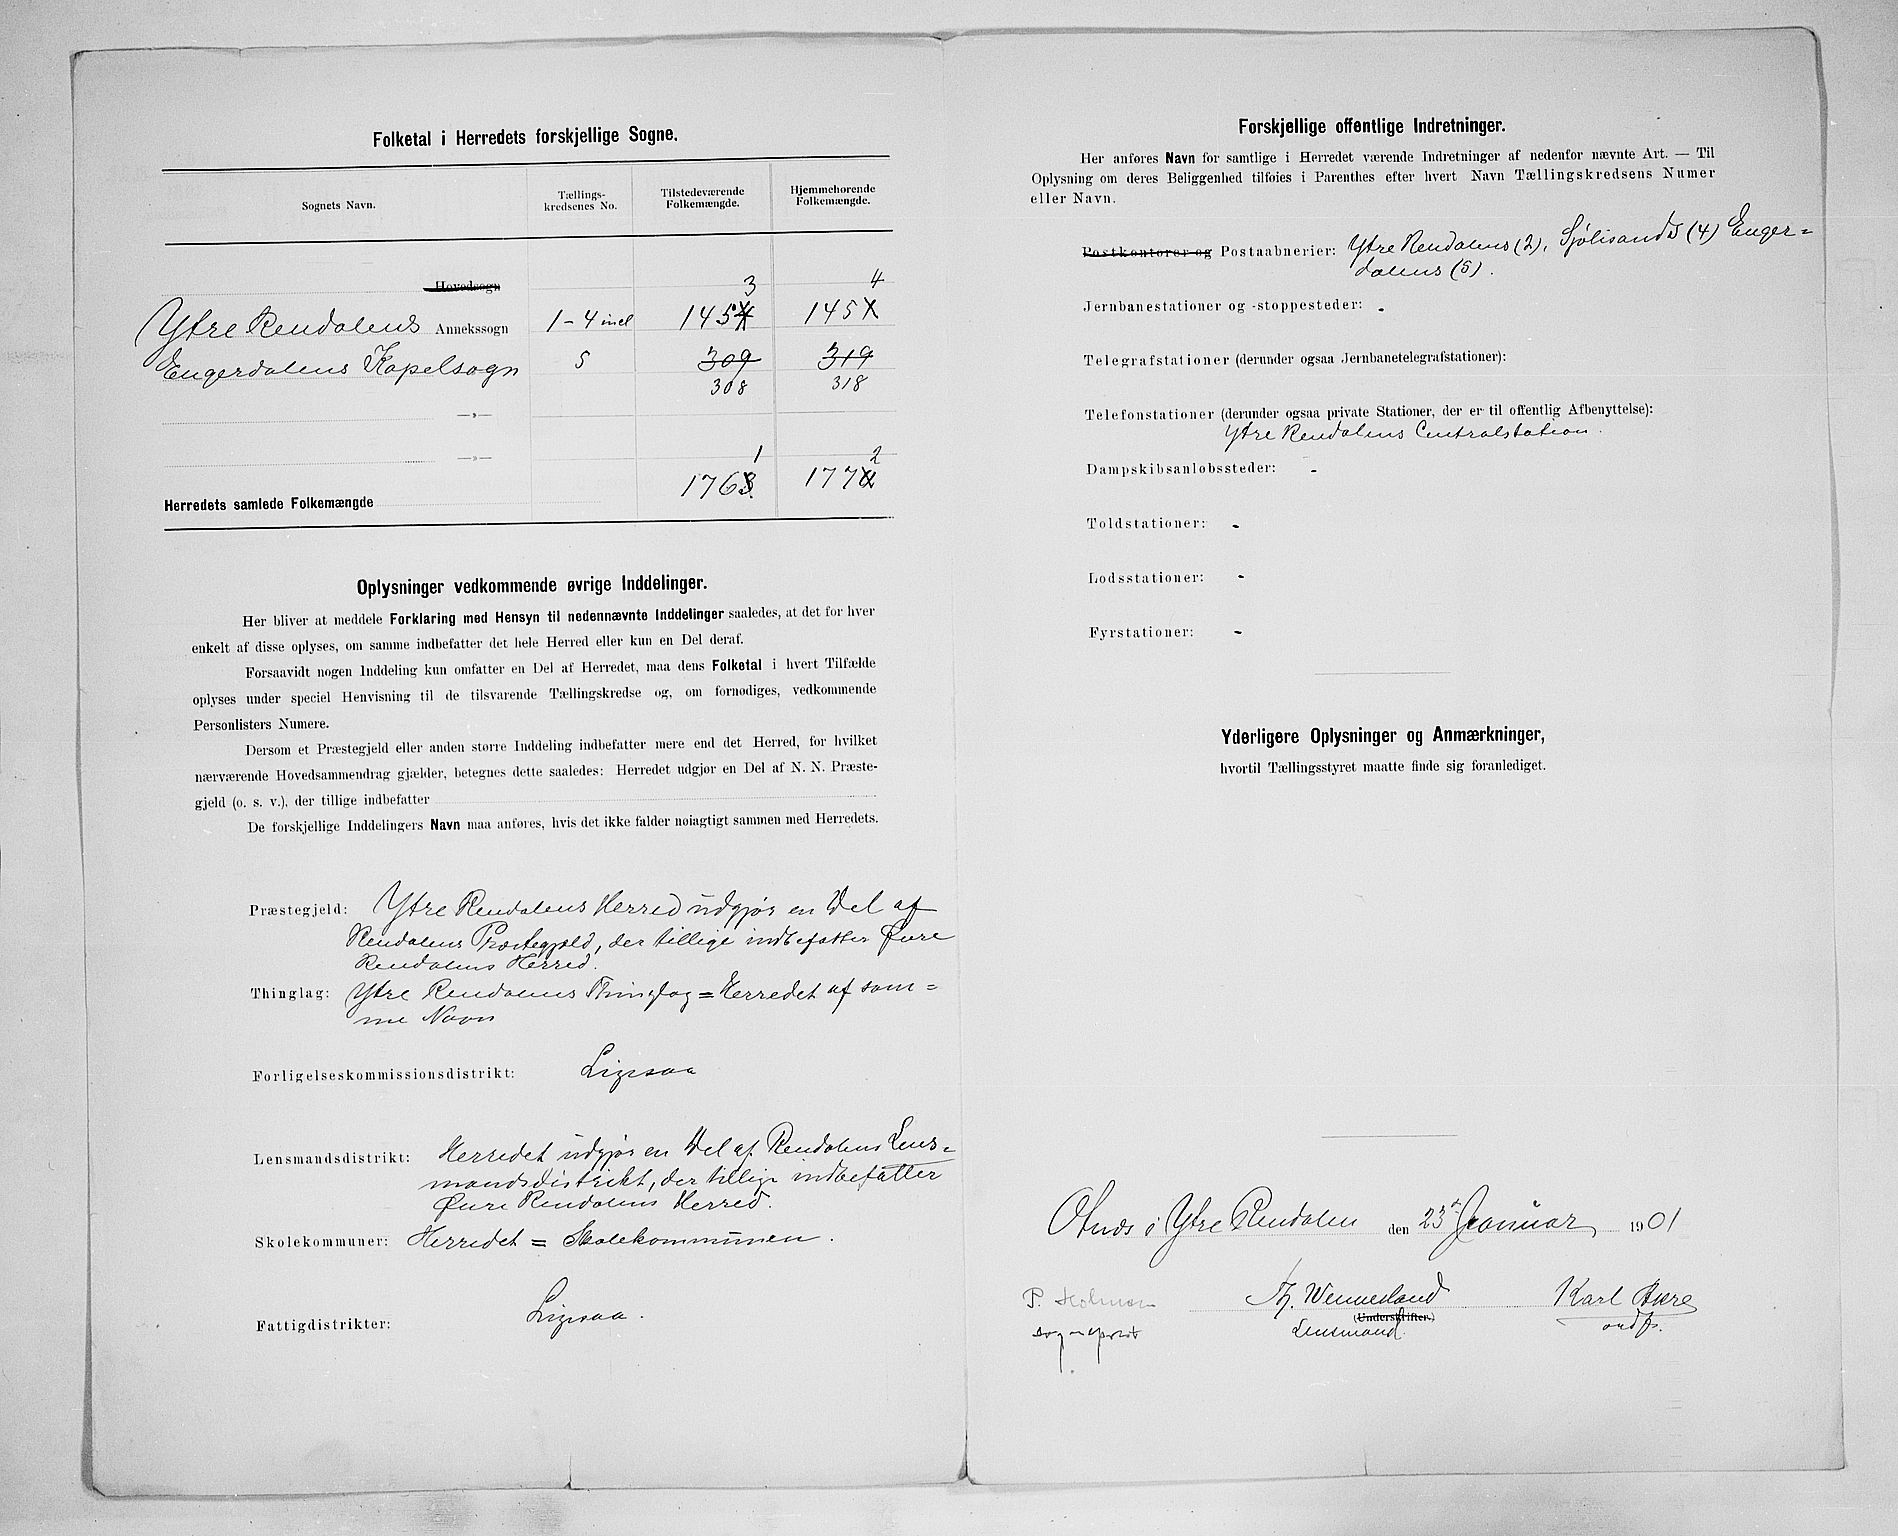 Folketal i Herredets forskjellige Sogne.
Sognets Navn.
Tællings-
kredsenes No.
Tilstedeværende
Folkemængde.
Hjemmehørende
Folkemængde.
Hovedsogn
3 4
Ytre Rendalens Annekssogn 1-4 incl 145 145
Engerdalens Kapelsogn 5 309 319
308 318
—»—
—»—
1 2
Herredets samlede Folkemængde 1763 177
Oplysninger vedkommende øvrige Inddelinger.
Her bliver at meddele Forklaring med Hensyn til nedennævnte Inddelinger saaledes, at det for hver
enkelt af disse oplyses, om samme indbefatter det hele Herred eller kun en Del deraf.
Forsaavidt nogen Inddeling kun omfatter en Del af Herredet, maa dens Folketal i hvert Tilfælde
oplyses under speciel Henvisning til de tilsvarende Tællingskredse og, om fornødiges, vedkommende
Personlisters Numere.
Dersom et Præstegjeld eller anden større Inddeling indbefatter mere end det Herred, for hvilket
nærværende Hovedsammendrag gjælder, betegnes dette saaledes: Herredet udgjør en Del af N. N. Præste-
gjeld (o. s. v.), der tillige indbefatter
De forskjellige Inddelingers Navn maa anføres, hvis det ikke falder nøiagtigt sammen med Herredets.
Præstegjeld: Ytre Rendalens Herred udgjør en Del af
Rendalens Præstegjeld, der tillige indbefatter Øvre
Rendalens Herred.
Thinglag: Ytre Rendalens Thinglag = Herredet af sam=
me Navn
Forligelseskommissionsdistrikt: Ligesaa
Lensmandsdistrikt: Herredet udgjør en Del af Rendalens Lens=
mandsdistrikt, der tillige indbefatter
Øvre Rendalens Herred.
Skolekommuner: Herredet = Skolekommunen.
Fattigdistrikter: Ligesaa.
Forskjellige offentlige Indretninger.
Her anføres Navn for samtlige i Herredet værende Indretninger af nedenfor nævnte Art. — Til
Oplysning om deres Beliggenhed tilføies i Parenthes efter hvert Navn Tællingskredsens Numer
eller Navn.
Postkontorer og Postaabnerier: Ytre Rendalens (2), Sjølisands (4) Enger=
dalens (5).
Jernbanestationer og -stoppesteder: -
Telegrafstationer (derunder ogsaa Jernbanetelegrafstationer):
Telefonstationer (derunder ogsaa private Stationer, der er til offentlig Afbenyttelse):
Ytre Rendalens Centralstation.
Dampskibsanløbssteder: -
Toldstationer: -
Lodsstationer: -
Fyrstationer: -
Yderligere Oplysninger og Anmærkninger,
hvortil Tællingsstyret maatte finde sig foranlediget.
Otnes i Ytre Rendalen den 23 Januar 1901
P. Holmsen Th. Wennesland Karl Akre
(Underskrifter.)
sogneprest Lensmand. ordf.